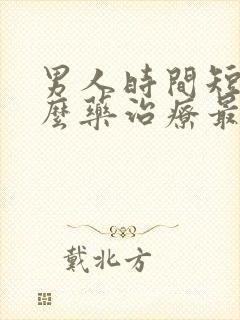 男人時間短
麼藥治療最
戴北方